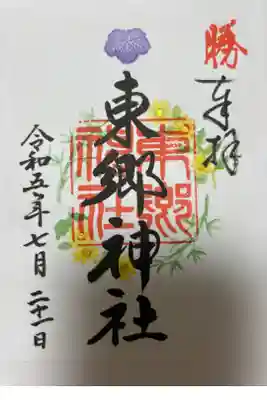 勝
奉拝
東郷神社
東郷神社
令和五年七月二十一日